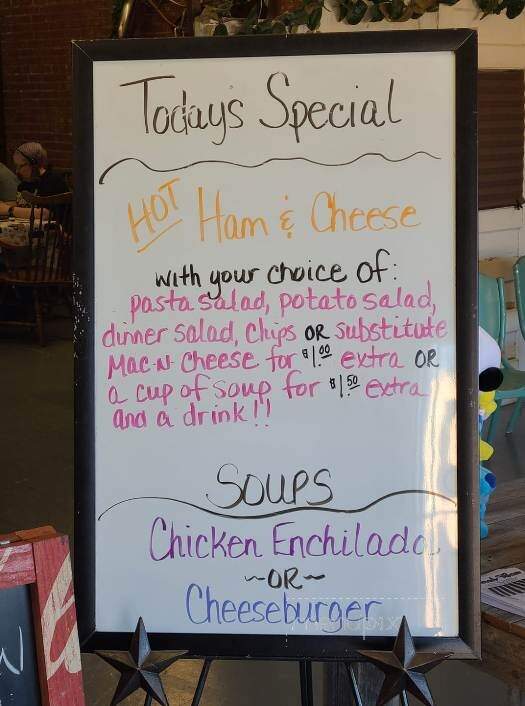 Today's Special
HOT Ham & Cheese
with your choice of:
pasta salad, potato salad,
dinner salad, chips OR substitute
Mac-N-Cheese for $1.00 extra OR
a cup of soup for $1.50 extra
and a drink!!
SOUPS
Chicken Enchilada
~OR~
Cheeseburger